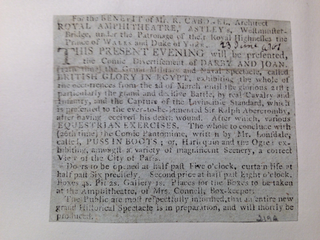 For the BENEFIT of Mr. R. CABANEL, Architect
ROYAL AMPHITHEATRE, ASTLEY's, Westminster-
Bridge, under the Patronage of their Royal Highnesses the
Prince of WALES and Duke of YORK.
THIS PRESENT EVENING will be presented,
the Comic Divertisement of DARBY AND JOAN.
time) the Grand Military and Naval Spectacle, called
BRITISH GLORY IN EGYPT, exhibiting the whole of
the occurrences from the 2d of March, until the glorious and
particularly the grand and decisive Battle, by real Cavalry and
Infantry, and the Capture of the Invincible Standard, which
is presented to the ever-to-be-lamented Sir Ralph Abercromby,
after having received his death wound. After which, various
EQUESTRIAN EXERCISES. The whole to conclude with
time) the Comic Pantomime, written by Mr. Lonsdale,
called, PUSS IN BOOTS; or, Harlequin and the Ogre; ex-
hibiting, amongst a variety of magnificent Scenery, a correct
View of the City of Paris.
Doors to be opened at half past Five o'clock, curtain rise at
half past Six precisely. Second price at half past Eight o'clock.
Boxes 4s. Pit 2s. Gallery 1s. Places for the Boxes to be taken
at the Amphitheatre, of Mrs. Connell, Box-keeper.
The Public are most respectfully informed, that an entire new
grand Historical Spectacle is in preparation, and will shortly be
produced.